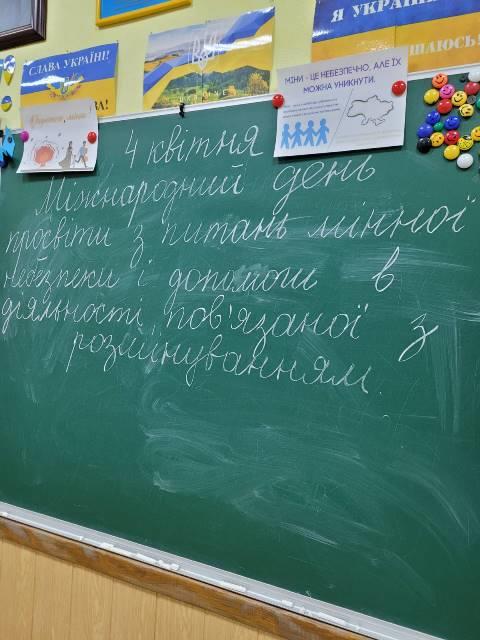 СЛАВА УКРАЇНІ!
Я УКРАЇН
МІНИ - ЦЕ НЕБЕЗПЕЧНО, АЛЕ ЇХ
МОЖНА УНИКНУТИ.
4 квітня
Міжнародний день
просвіти з питань мінної
небезпеки і допомоги в
діяльності, пов'язаної з
розмінуванням.